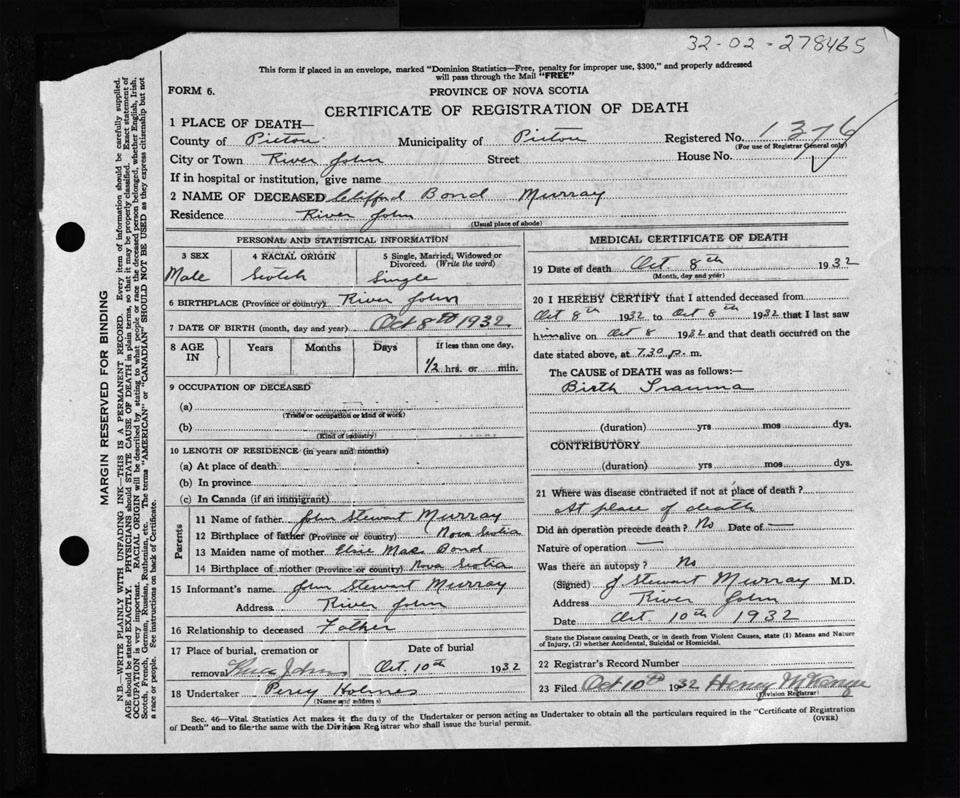 32-02-278465
This form if placed in an envelope, marked "Dominion Statistics—Free, penalty for improper use, $300," and properly addressed
will pass through the Mail "FREE"
FORM 6. PROVINCE OF NOVA SCOTIA
CERTIFICATE OF REGISTRATION OF DEATH
1 PLACE OF DEATH—
County of Pictou Municipality of Pictou Registered No. 1376
(For use of Registrar General only)
City or Town River John Street House No.
If in hospital or institution, give name
2 NAME OF DECEASED Clifford Bond Murray
Residence River John
(Usual place of abode)
PERSONAL AND STATISTICAL INFORMATION
3 SEX 4 RACIAL ORIGIN 5 Single, Married, Widowed or
Divorced. (Write the word)
Male Scotch Single
6 BIRTHPLACE (Province or country) River John
7 DATE OF BIRTH (month, day and year) Oct 8th 1932
8 AGE IN Years Months Days If less than one day,
1/2 hrs. or min.
9 OCCUPATION OF DECEASED
(a)
(Trade or occupation or kind of work)
(b)
(Kind of industry)
10 LENGTH OF RESIDENCE (in years and months)
(a) At place of death
(b) In province
(c) In Canada (if an immigrant)
Parents
11 Name of father John Stewart Murray
12 Birthplace of father (Province or country) Nova Scotia
13 Maiden name of mother Elsie Mae Bond
14 Birthplace of mother (Province or country) Nova Scotia
15 Informant's name John Stewart Murray
Address River John
16 Relationship to deceased Father
17 Place of burial, cremation or Date of burial
removal River John Oct. 10th 1932
18 Undertaker Percy Holmes
(Name and address)
MEDICAL CERTIFICATE OF DEATH
19 Date of death Oct. 8th 1932
(Month, day and year)
20 I HEREBY CERTIFY that I attended deceased from
Oct 8th 1932 to Oct 8th 1932 that I last saw
him alive on Oct 8 1932 and that death occurred on
date stated above, at 7.30 p. m.
The CAUSE of DEATH was as follows:—
Birth Trauma
(duration) yrs mos dys.
CONTRIBUTORY
(duration) yrs. mos. dys.
21 Where was disease contracted if not at place of death?
At place of death
Did an operation precede death? No Date of —
Nature of operation —
Was there an autopsy? No
(Signed) J Stewart Murray M.D.
Address River John
Date Oct. 10th 1932
State the Disease causing Death, or in death from Violent Causes, state (1) Means and Nature
of Injury, (2) whether Accidental, Suicidal or Homicidal.
22 Registrar's Record Number
23 Filed Oct 10th 1932 Henry McKenzie
(Division Registrar)
Sec. 46—Vital Statistics Act makes it the duty of the Undertaker or person acting as Undertaker to obtain all the particulars required in the "Certificate of Registration
of Death" and to file the same with the Division Registrar who shall issue the burial permit. (OVER)
MARGIN RESERVED FOR BINDING
N.B.—WRITE PLAINLY WITH UNFADING INK—THIS IS A PERMANENT RECORD. Every item of information should be carefully supplied.
AGE should be stated EXACTLY. PHYSICIANS should STATE CAUSE OF DEATH in plain terms, so that it may be properly classified. Exact statement of
OCCUPATION is very important. RACIAL ORIGIN will be described by stating to what people or race the deceased person belonged, whether English, Irish,
Scotch, French, German, Russian, Ruthenian, etc. The terms "AMERICAN" or "CANADIAN" SHOULD NOT BE USED as they express citizenship but not
a race or people. See instructions on back of Certificate.